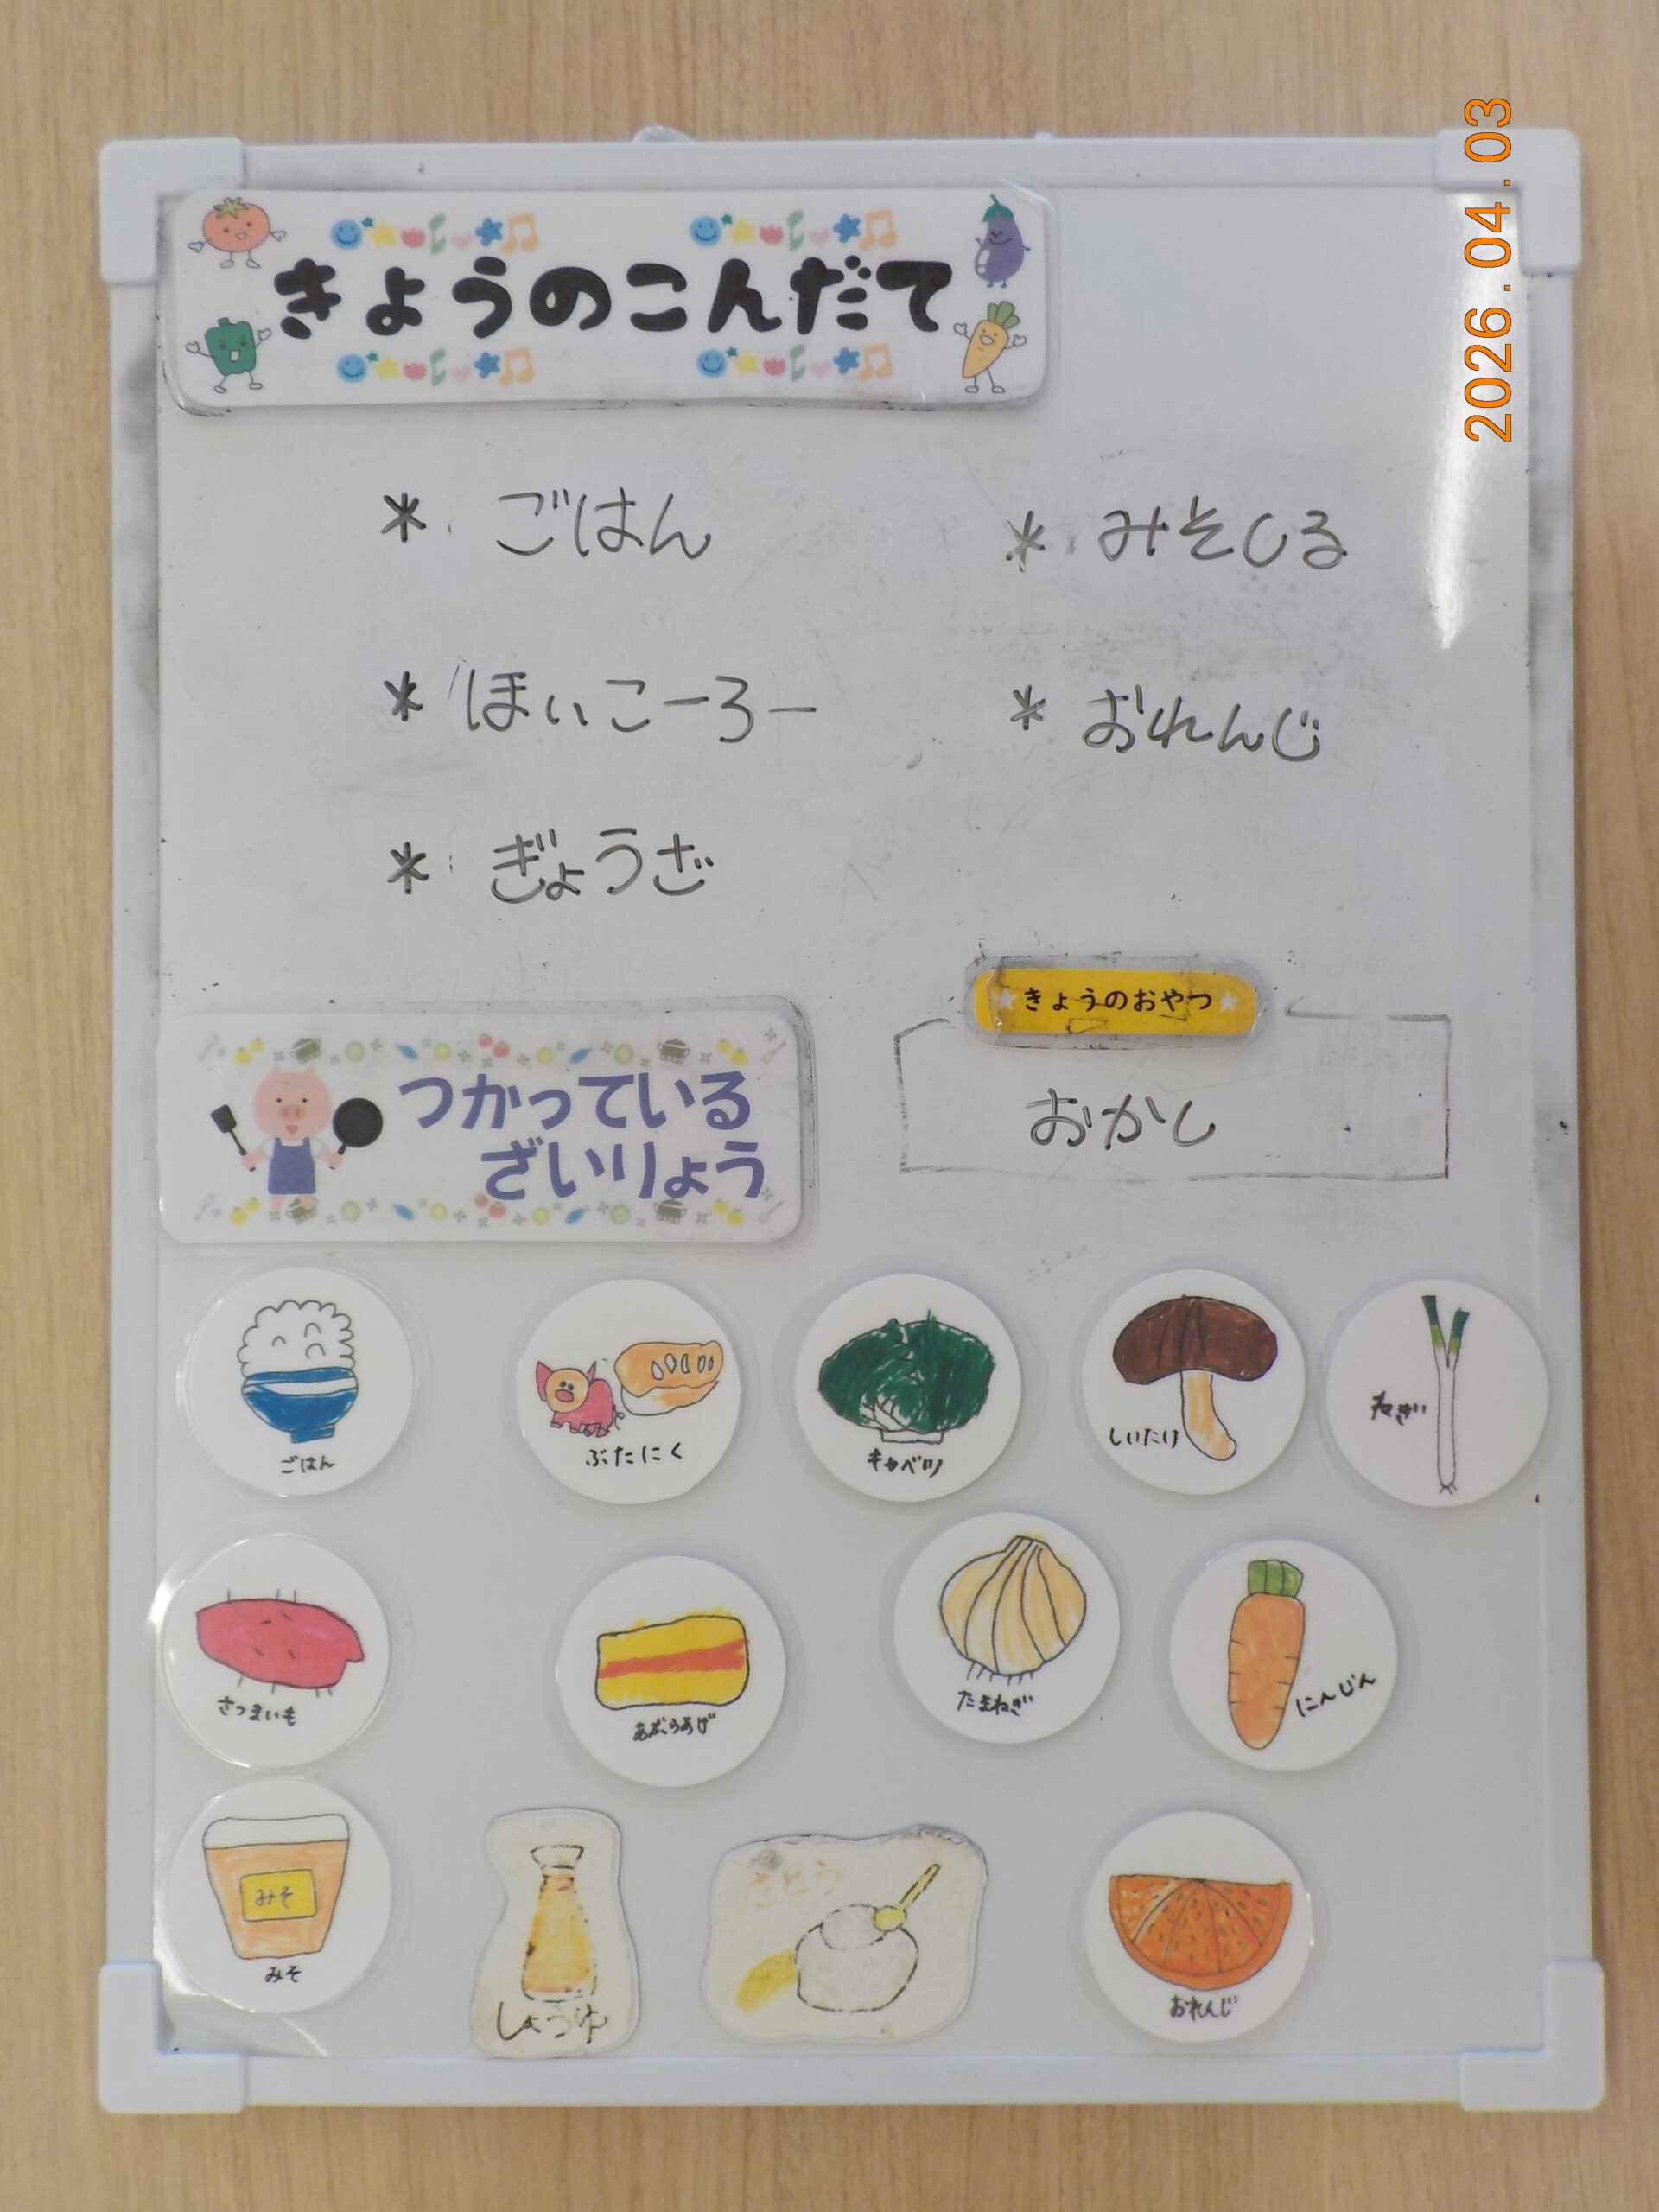 2026.04.03
きょうのこんだて
* ごはん
* みそしる
* ほいこーろー
* おれんじ
* ぎょうざ
きょうのおやつ
おかし
つかっている
ざいりょう
ごはん
ぶたにく
キャベツ
しいたけ
ねぎ
さつまいも
あぶらあげ
たまねぎ
にんじん
みそ
みそ
しょうゆ
さとう
おれんじ